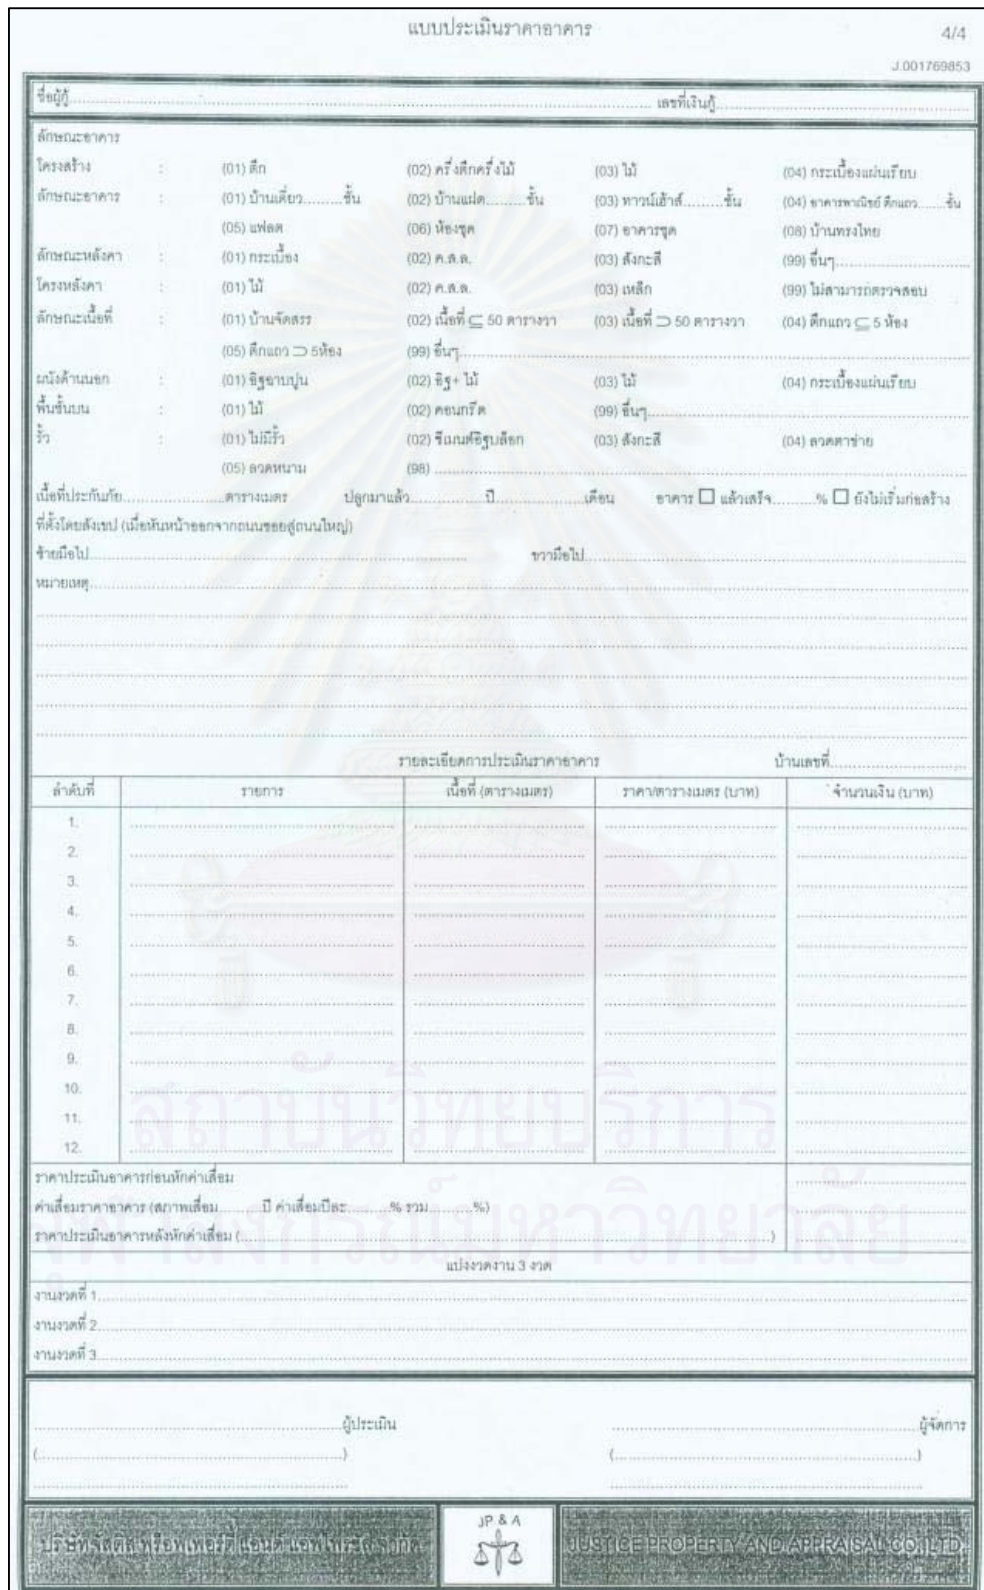 แบบประเมินราคาอาคาร
4/4
J.001769853
ชื่อผู้กู้ เลขที่เงินกู้
ลักษณะอาคาร
โครงสร้าง : (01) ตึก (02) ครึ่งตึกครึ่งไม้ (03) ไม้ (04) กระเบื้องแผ่นเรียบ
ลักษณะอาคาร : (01) บ้านเดี่ยว.........ชั้น (02) บ้านแฝด.........ชั้น (03) ทาวน์เฮ้าส์.........ชั้น (04) อาคารพาณิชย์ ตึกแถว.......ชั้น
(05) แฟลต (06) ห้องชุด (07) อาคารชุด (08) บ้านทรงไทย
ลักษณะหลังคา : (01) กระเบื้อง (02) ค.ส.ล. (03) สังกะสี (99) อื่นๆ
โครงหลังคา : (01) ไม้ (02) ค.ส.ล. (03) เหล็ก (99) ไม่สามารถตรวจสอบ
ลักษณะเนื้อที่ : (01) บ้านจัดสรร (02) เนื้อที่ ⊆ 50 ตารางวา (03) เนื้อที่ ⊃ 50 ตารางวา (04) ตึกแถว ⊆ 5 ห้อง
(05) ตึกแถว ⊃ 5ห้อง (99) อื่นๆ
ผนังด้านนอก : (01) อิฐฉาบปูน (02) อิฐ+ ไม้ (03) ไม้ (04) กระเบื้องแผ่นเรียบ
พื้นชั้นบน : (01) ไม้ (02) คอนกรีต (99) อื่นๆ
รั้ว : (01) ไม่มีรั้ว (02) ซีเมนต์อิฐบล็อก (03) สังกะสี (04) ลวดตาข่าย
(05) ลวดหนาม (98)
เนื้อที่ประกันภัย ตารางเมตร ปลูกมาแล้ว ปี เดือน อาคาร ☐ แล้วเสร็จ.........% ☐ ยังไม่เริ่มก่อสร้าง
ที่ตั้งโดยสังเขป (เมื่อหันหน้าออกจากถนนซอยสู่ถนนใหญ่)
ซ้ายมือไป ขวามือไป
หมายเหตุ
รายละเอียดการประเมินราคาอาคาร บ้านเลขที่
ลำดับที่ รายการ เนื้อที่ (ตารางเมตร) ราคา/ตารางเมตร (บาท) จำนวนเงิน (บาท)
1.
2.
3.
4.
5.
6.
7.
8.
9.
10.
11.
12.
สถาบันวิทยบริการ
จุฬาลงกรณ์มหาวิทยาลัย
ราคาประเมินอาคารก่อนหักค่าเสื่อม
ค่าเสื่อมราคาอาคาร (สภาพเสื่อม.........ปี ค่าเสื่อมปีละ.........% รวม.........%)
ราคาประเมินอาคารหลังหักค่าเสื่อม ( )
แบ่งงวดงาน 3 งวด
งานงวดที่ 1
งานงวดที่ 2
งานงวดที่ 3
ผู้ประเมิน ผู้จัดการ
( ) ( )
บริษัท จัสติส พร็อพเพอร์ตี้ แอนด์ แอพไพรซัล จำกัด
JP & A
JUSTICE PROPERTY AND APPRAISAL CO.,LTD.